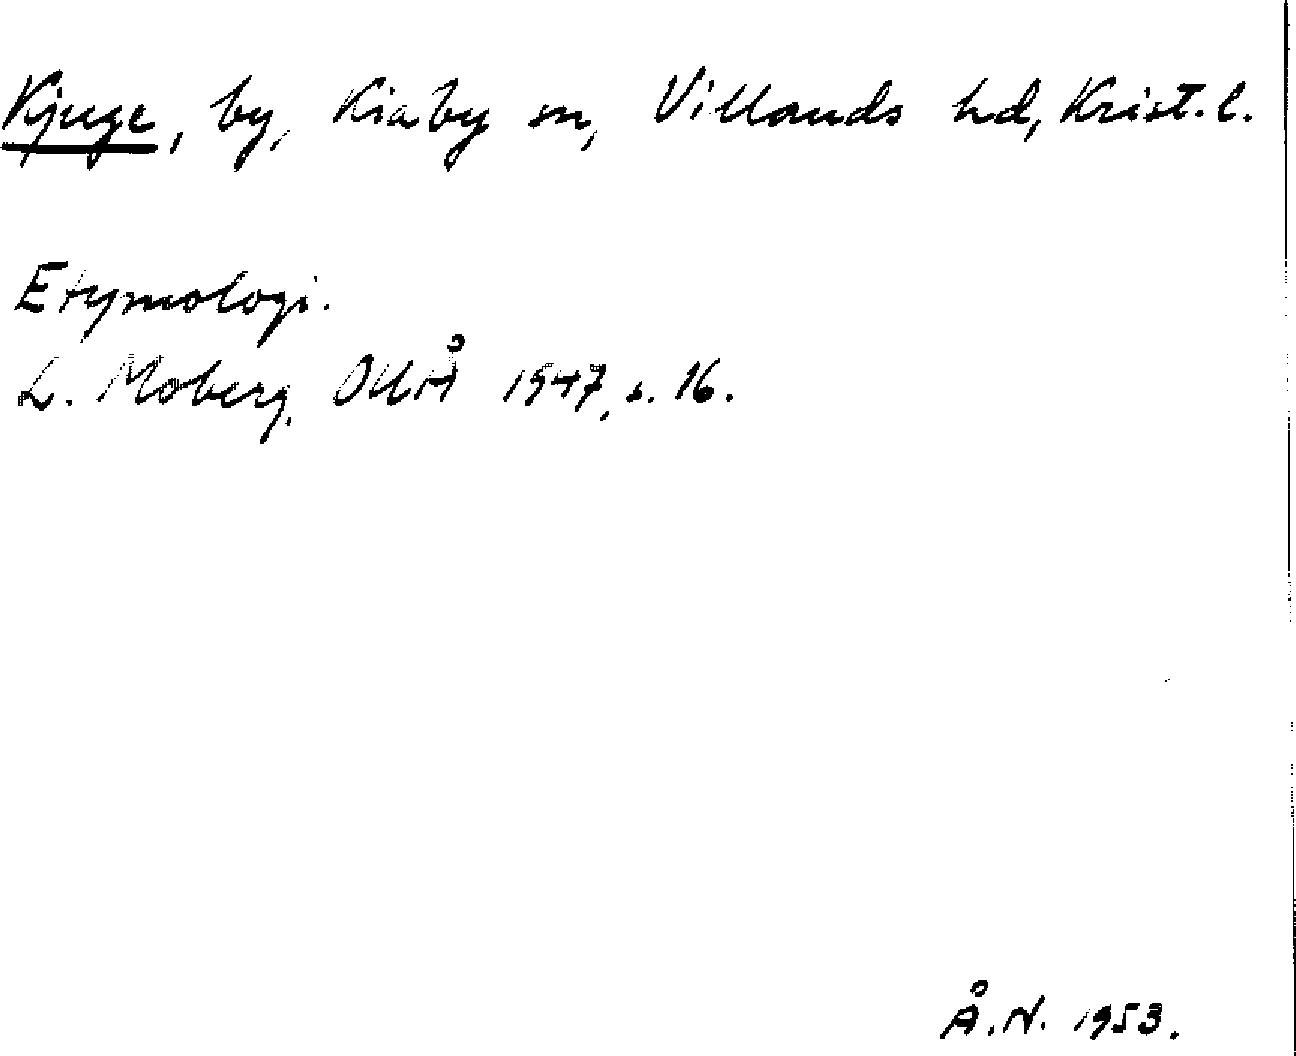 Kjuge, by, Kiaby sn, Villands hd, Krist. l.
Etymologi.
L. Moberg, OUÅ 1947, s. 16.
Å.N. 1953.